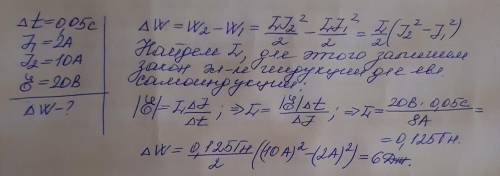 Δt=0,05с
J₁=2А
J₂=10А
Ɛ=20В
ΔW-?
ΔW = W₂ - W₁ = LJ₂²/2 - LJ₁²/2 = L/2 (J₂² - J₁²)
Найдем L, для этого запишем
закон эл-м. индукции для явл.
самоиндукции:
|Ɛ| = L ΔJ/Δt; ⇒ L = |Ɛ|Δt/ΔJ; ⇒ L = 20В · 0,05с/8А =
= 0,125Гн.
ΔW = 0,125Гн/2 ((10А)² - (2А)²) = 6Дж.